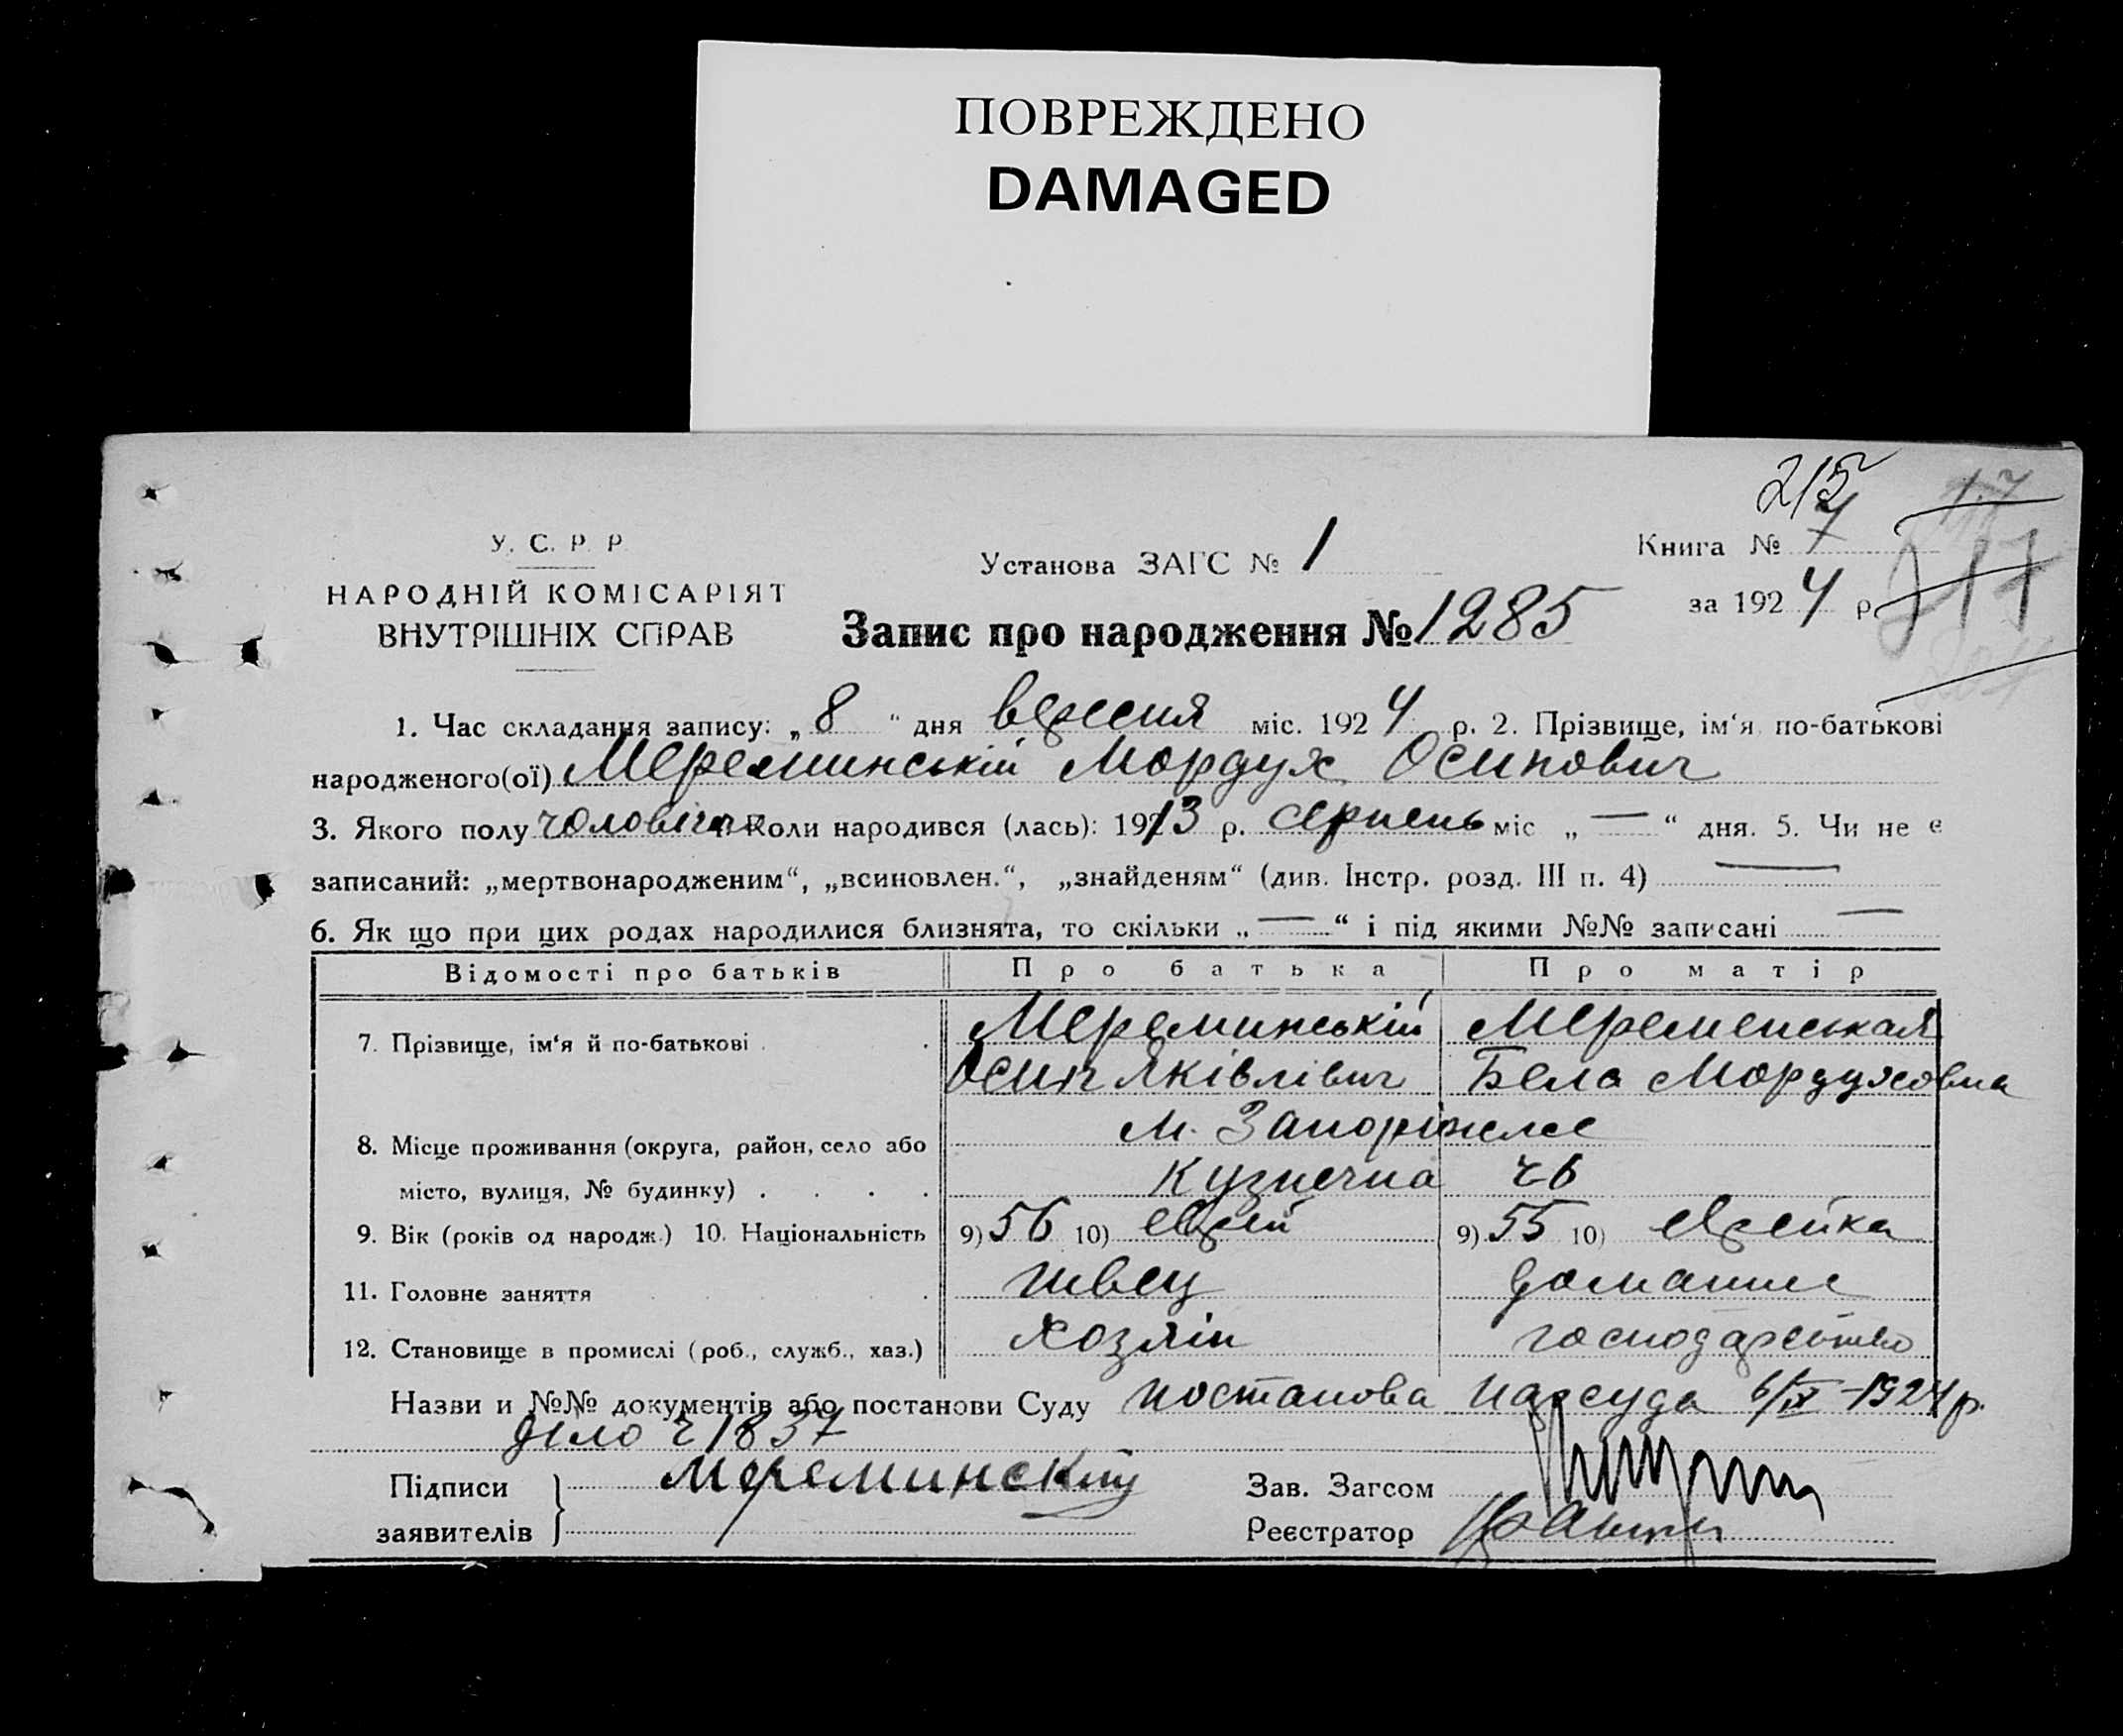 ПОВРЕЖДЕНО
DAMAGED
215
У. С. Р. Р.
НАРОДНІЙ КОМІСАРІЯТ
ВНУТРІШНІХ СПРАВ
Установа ЗАГС № 1
Книга № 7
за 1924 р.
117
Запис про народження № 1285
1. Час складання запису: „8“ дня вересня міс. 1924 р. 2. Прізвище, ім‘я по-батькові
народженого(ої) Мереминській Мордух Осипович
3. Якого полу чоловіча Коли народився (лась): 1913 р. серпень міс „—“ дня. 5. Чи не є
записаний: „мертвонародженим“, „всиновлен.“, „знайденям“ (див. Інстр. розд. III п. 4) —
6. Як що при цих родах народилися близнята, то скільки „—“ і під якими №№ записані —
Відомості про батьків Про батька Про матір
7. Прізвище, ім‘я й по-батькові Мереминській Меременская
Осип Яківлівич Бела Мордуховна
8. Місце проживання (округа, район, село або м. Запоріжже
місто, вулиця, № будинку) Кузнечна ч6
9. Вік (років од народж.) 10. Національність 9) 56 10) еврей 9) 55 10) еврейка
11. Головне заняття швец домашне
12. Становище в промислі (роб., служб., хаз.) хозяін господарство
Назви и №№ документів або постанови Суду постанова нарсуда 6/IX-1924 р.
діло ч 1837
Підписи Мереминский Зав. Загсом
заявителів Реєстратор